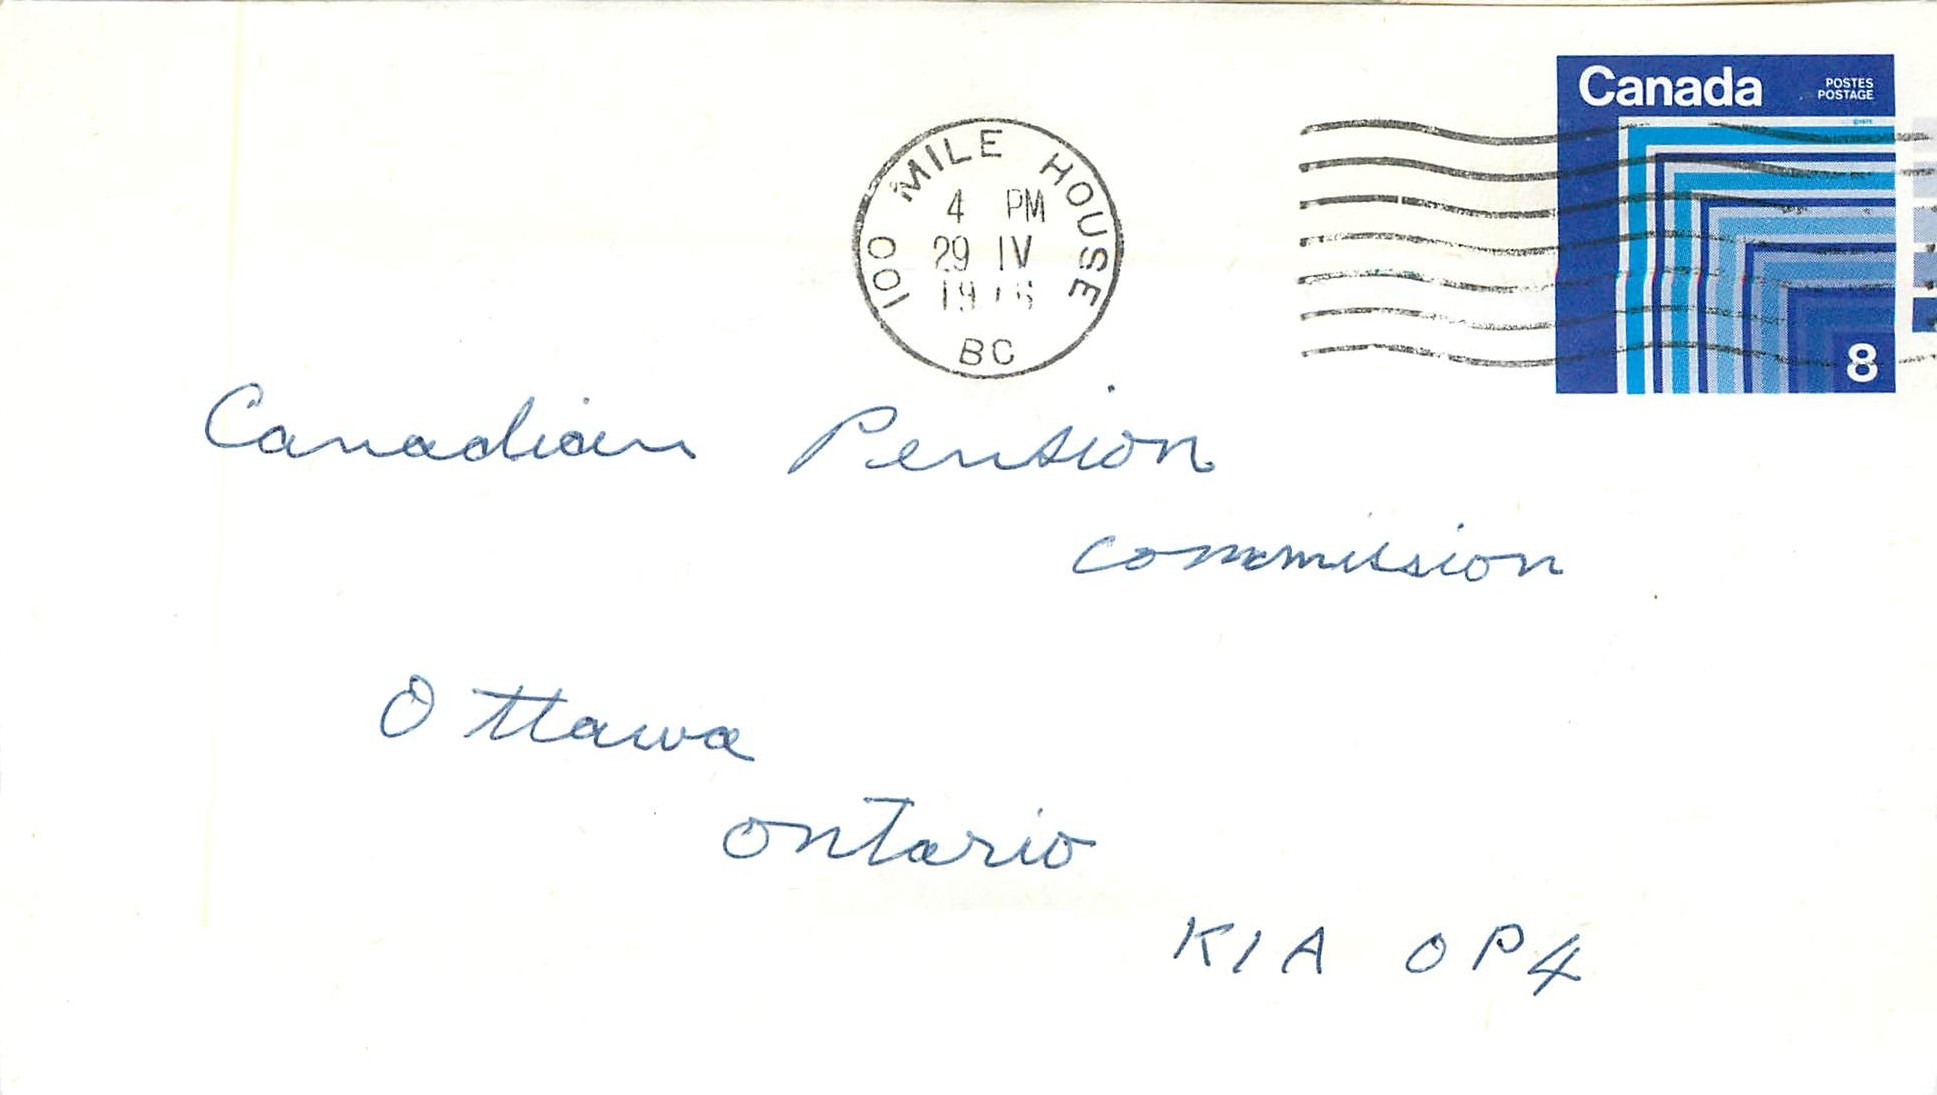 Canada
POSTES
POSTAGE
100 MILE HOUSE
4 PM
29 IV
BC
8
Canadian Pension
Commission
Ottawa
Ontario
K1A 0P4